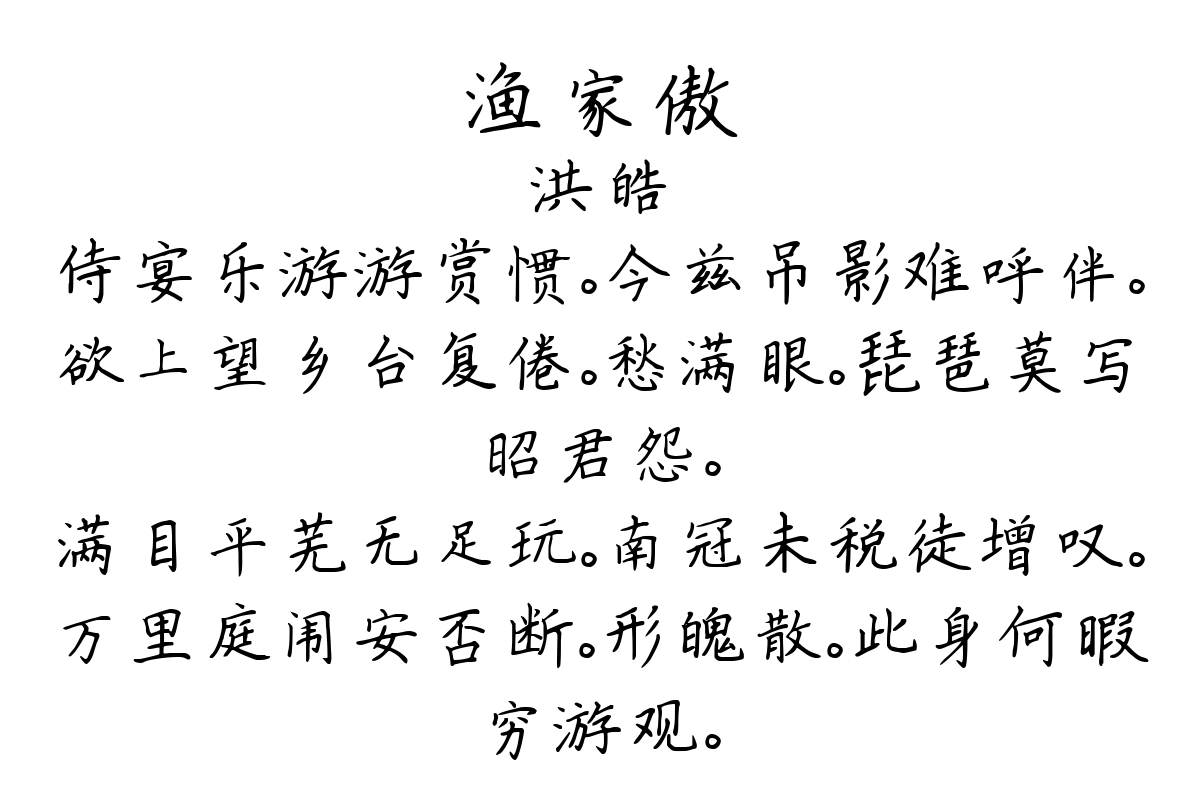 渔家傲
洪皓
侍宴乐游游赏惯。今兹吊影难呼伴。
欲上望乡台复倦。愁满眼。琵琶莫写
昭君怨。
满目平芜无足玩。南冠未税徒增叹。
万里庭闹安否断。形魄散。此身何暇
穷游观。